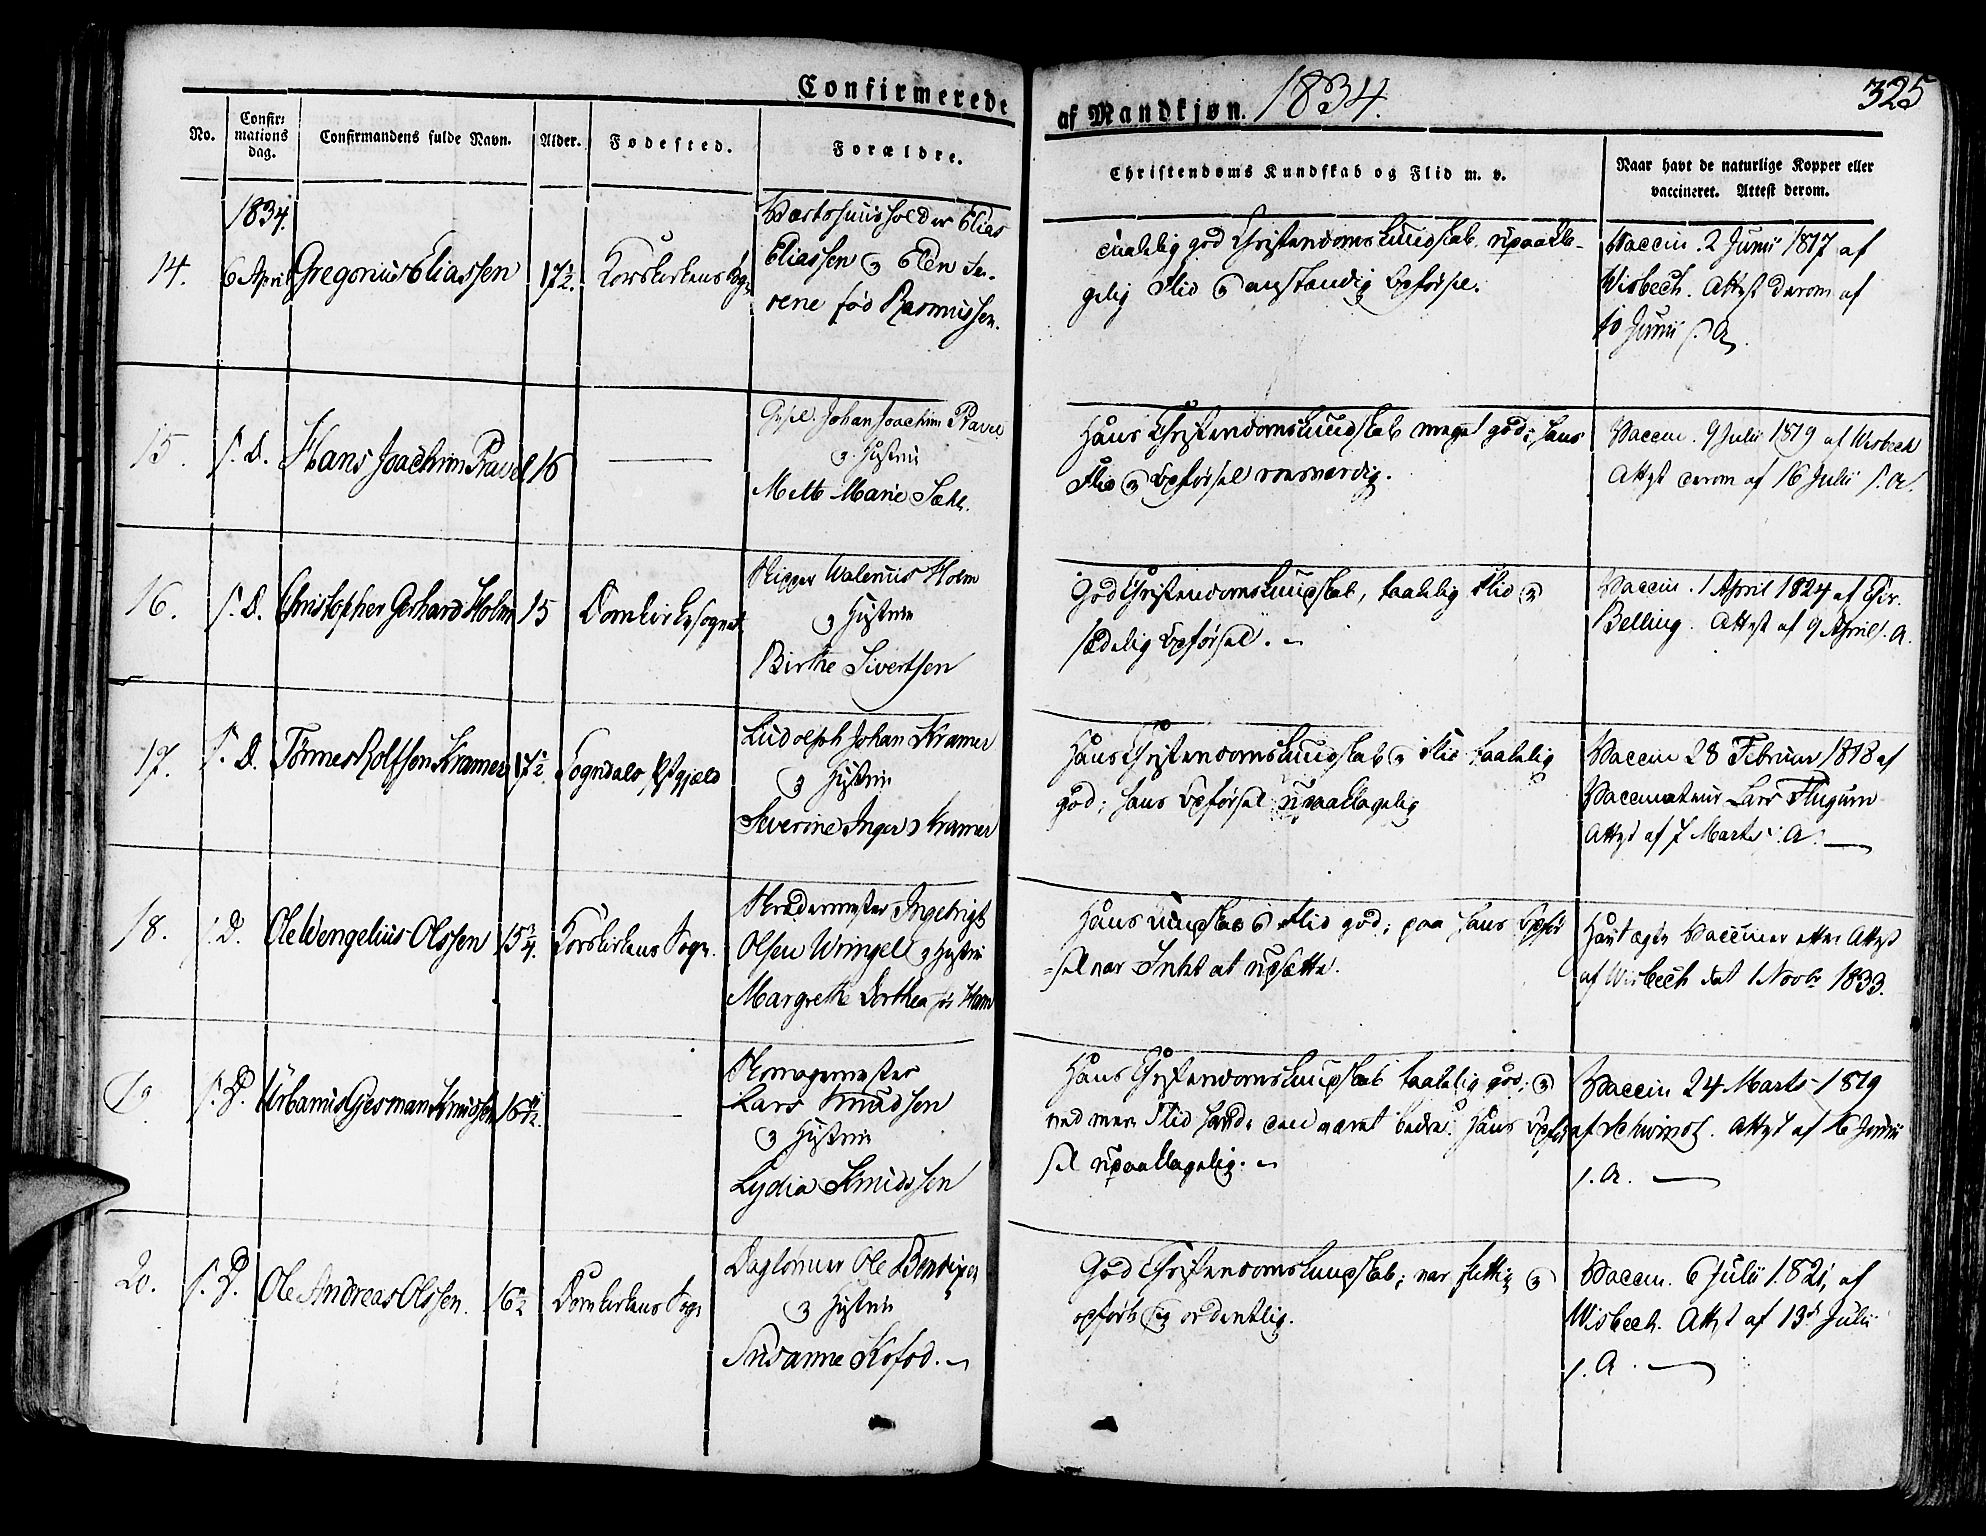 Confirmerede
af Mandkjøn. 1834.
325
No.
Confir-
mations
dag.
Confirmandens fulde Navn.
Alder.
Fødested.
Forældre.
Christendoms Kundskab og Flid m. v.
Naar havt de naturlige Kopper eller
vaccineret. Attest derom.
1834.
14.
6 April
Gregorius Eliassen
17½.
Korskirkens Sogn
Elias
Eliassen og Elen Se-
rene fød Rasmussen.
taalelig god Christendomskundskab. upaakla-
gelig Flid og anstændig Opførsel.
Vaccin. 2 Junii 1817 af
Wisbech. Attest derom af
10 Junii s. A.
15.
s. D.
Hans Joachim Pravel
16
Johan Joachim Pravel
og Hustrue
Mette Marie
Hans Christendomskundskab meget god; hans
Flid og Opførsel roesværdig.
Vaccin. 9 Julii 1819 af Wisbech
Attest derom af 16 Julii s. A.
16.
s. D.
Christopher Gerhard Holm
15
Domkirkesognet
Skipper Walenius Holm
og Hustrue
Birthe Sivertsen
God Christendomskundskab, taalelig Flid og
sædelig Opførsel.
Vaccin. 1 April 1824 af Chir.
Belling. Attest af 9 April s. A.
17.
s. D.
Tønnes Rolfsen Kramer
17½
Sogndals Præstgjeld
Ludolph Johan Kramer
og Hustrue
Severine Inger Kramer
Hans Christendomskundskab og Flid taalelig
god; hans Opførsel upaaklagelig
Vaccin 28 Februar 1818 af
Vaccinateur Lars Flugum
Attest af 7 Marts s. A.
18.
s. D.
Ole Wengelius Olssen
15¾.
Korskirkens Sogn.
Skrædermester Ingebrigt
Olsen Wringel og Hustrue
Margrethe Dorthea
Hans Kundskab og Flid god; paa hans Opfør-
sel var Intet at udsætte.
Havt ægte Vacciner efter Attest
af Wisbech dat 1 Novbr 1833.
19
s. D.
Urbanus Gjesman Knudsen
16
Lars Knudsen
og Hustrue
Lydia Knudssen
Hans Christendomskundskab taalelig god; og
med mere Flid havde den været bedre. Hans Opfør-
sel upaaklagelig.
Vaccin 24 Marts 1819
af Schwindt. Attest af 16 Junii
s. A.
20.
s. D.
Ole Andreas Olssen.
16½
Domkirkens Sogn
Daglønner Ole
og Hustrue
Susanne Kofod.
God Christendomskundskab; var flittig og
opførte sig ordentlig.
Vaccin. 6 Julii 1821, af
Wisbech. Attest af 13d Julii
s. A.